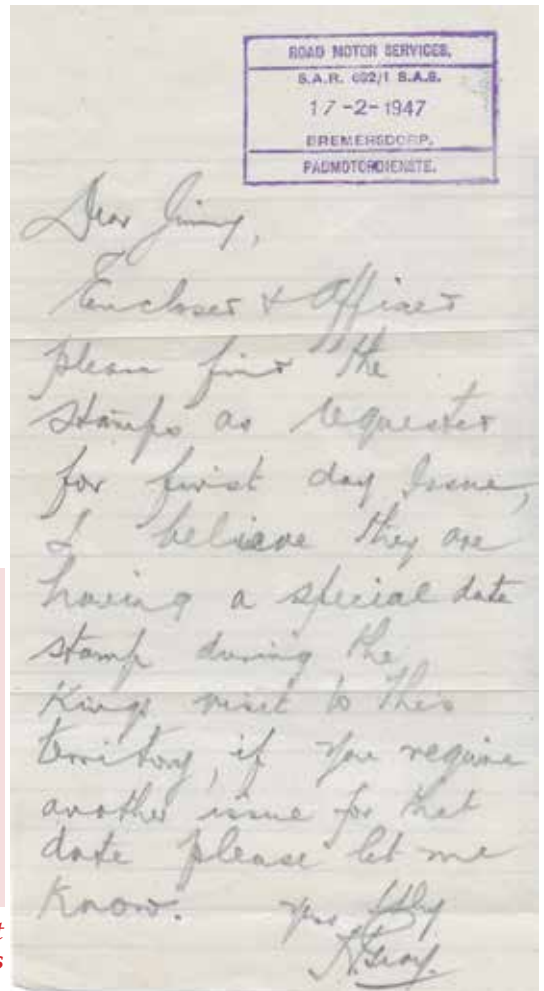 ROAD MOTOR SERVICES,
S.A.R. 692/1 S.A.S.
17-2-1947
BREMERSDORP.
PADMOTORDIENSTE.
Dear Jimmy,
Enclosed & Affixed
please find the
stamps as requested
for first day Issue,
I believe they are
having a special date
stamp during the
Kings visit to this
territory, if you require
another issue for that
date please let me
know.
Yrs ffly
t
s